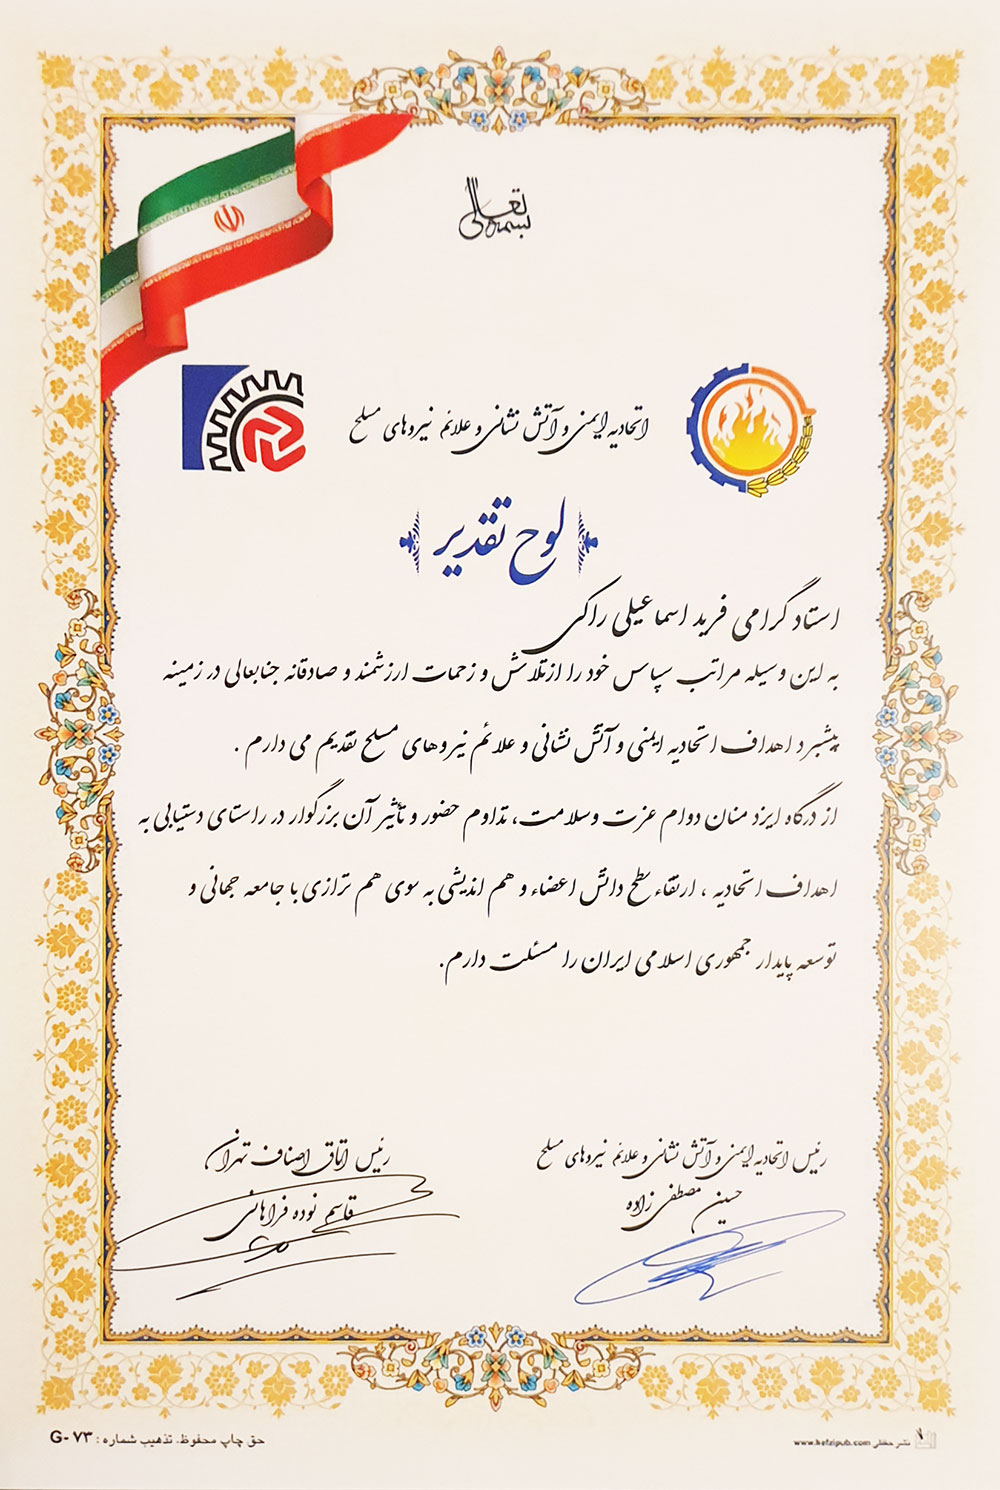 بسمه تعالی
اتحادیه ایمنی و آتش نشانی و علائم نیروهای مسلح
لوح تقدیر
استاد گرامی فرید اسماعیلی راکی
به این وسیله مراتب سپاس خود را از تلاش و زحمات ارزشمند و صادقانه جنابعالی در زمینه
پیشبرد اهداف اتحادیه ایمنی و آتش نشانی و علائم نیروهای مسلح تقدیم می دارم .
از درگاه ایزد منان دوام عزت و سلامت، تداوم حضور و تأثیر آن بزرگوار در راستای دستیابی به
اهداف اتحادیه ، ارتقاء سطح دانش اعضاء و هم اندیشی به سوی هم ترازی با جامعه جهانی و
توسعه پایدار جمهوری اسلامی ایران را مسئلت دارم.
رئیس اتحادیه ایمنی و آتش نشانی و علائم نیروهای مسلح
حسین مصطفی زاده
رئیس اتاق اصناف تهران
قاسم نوده فراهانی
نشر حفظی www.hefzipub.com
حق چاپ محفوظ، تذهیب شماره : G-۷۳